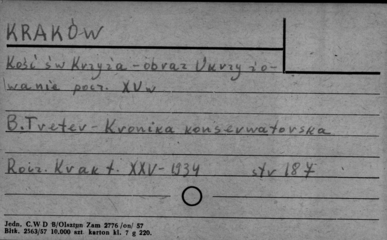 KRAKÓW
Kość św Krzyża - obraz Ukrzyżo-
wanie pocz. XV w
B. Treter - Kronika konserwatorska
Rocz. Krak t. XXV - 1934 str 187
Jedn. C.W D B/Olsztyn Zam 2776/on/ 57
Bltk. 2563/57 10.000 szt karton kl. 7 g 220.